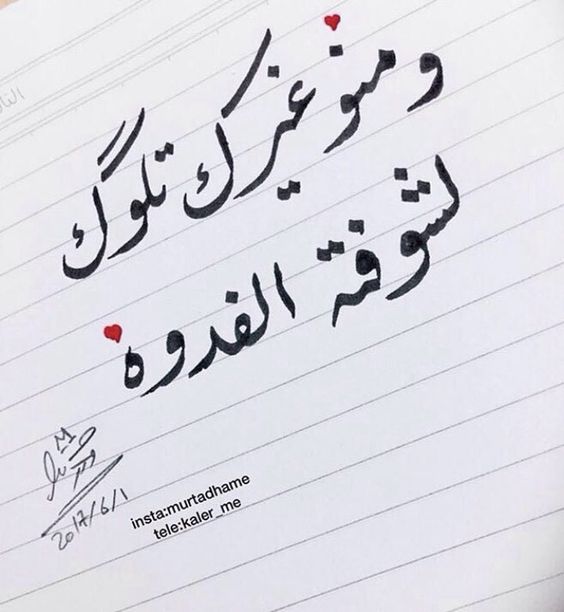 ومنو غيرك تلوگ
لشوفته الفدوه
2017/6/1
insta:murtadhame
tele:kaler_me